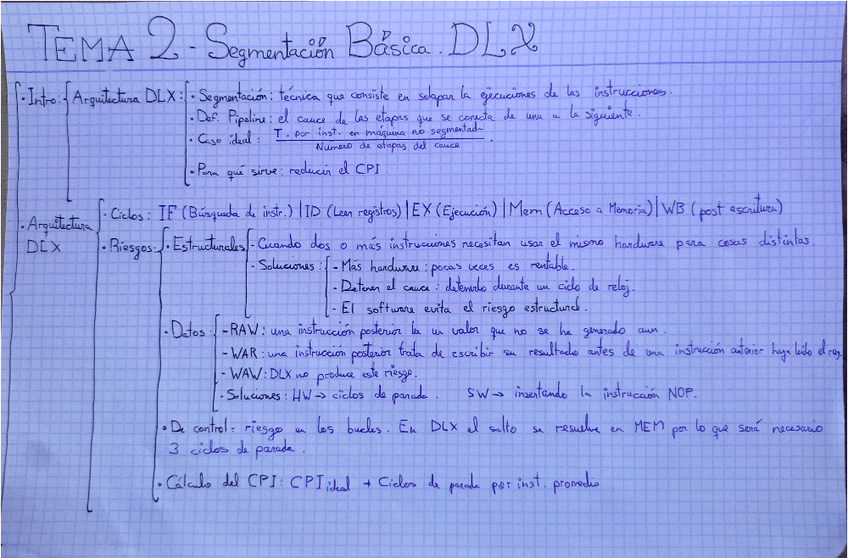 TEMA 2 - Segmentación Básica. DLX
· Intro: Arquitectura DLX: · Segmentación: técnica que consiste en solapar la ejecuciones de las instrucciones.
· Def. Pipeline: el cauce de las etapas que se conecta de una a la siguiente.
· Caso ideal: T. por inst. en máquina no segmentada
Número de etapas del cauce
· Para qué sirve: reducir el CPI
· Arquitectura DLX
· Ciclos: IF (Búsqueda de instr.) | ID (Leer registros) | EX (Ejecución) | Mem (Acceso a Memoria) | WB (post escritura)
· Riesgos: · Estructurales - Cuando dos o más instrucciones necesitan usar el mismo hardware para cosas distintas.
- Soluciones: - Más hardware: pocas veces es rentable.
- Detener el cauce: detenerlo durante un ciclo de reloj.
- El software evita el riesgo estructural.
· Datos: - RAW: una instrucción posterior lee un valor que no se ha generado aun.
- WAR: una instrucción posterior trata de escribir su resultado antes de una instrucción anterior haya leído el reg.
- WAW: DLX no produce este riesgo.
· Soluciones: HW → ciclos de parada. SW → insertando la instrucción NOP.
· De control: riesgo en los bucles. En DLX el salto se resuelve en MEM por lo que será necesario
3 ciclos de parada.
· Cálculo del CPI: CPI ideal + Ciclos de parada por inst. promedio